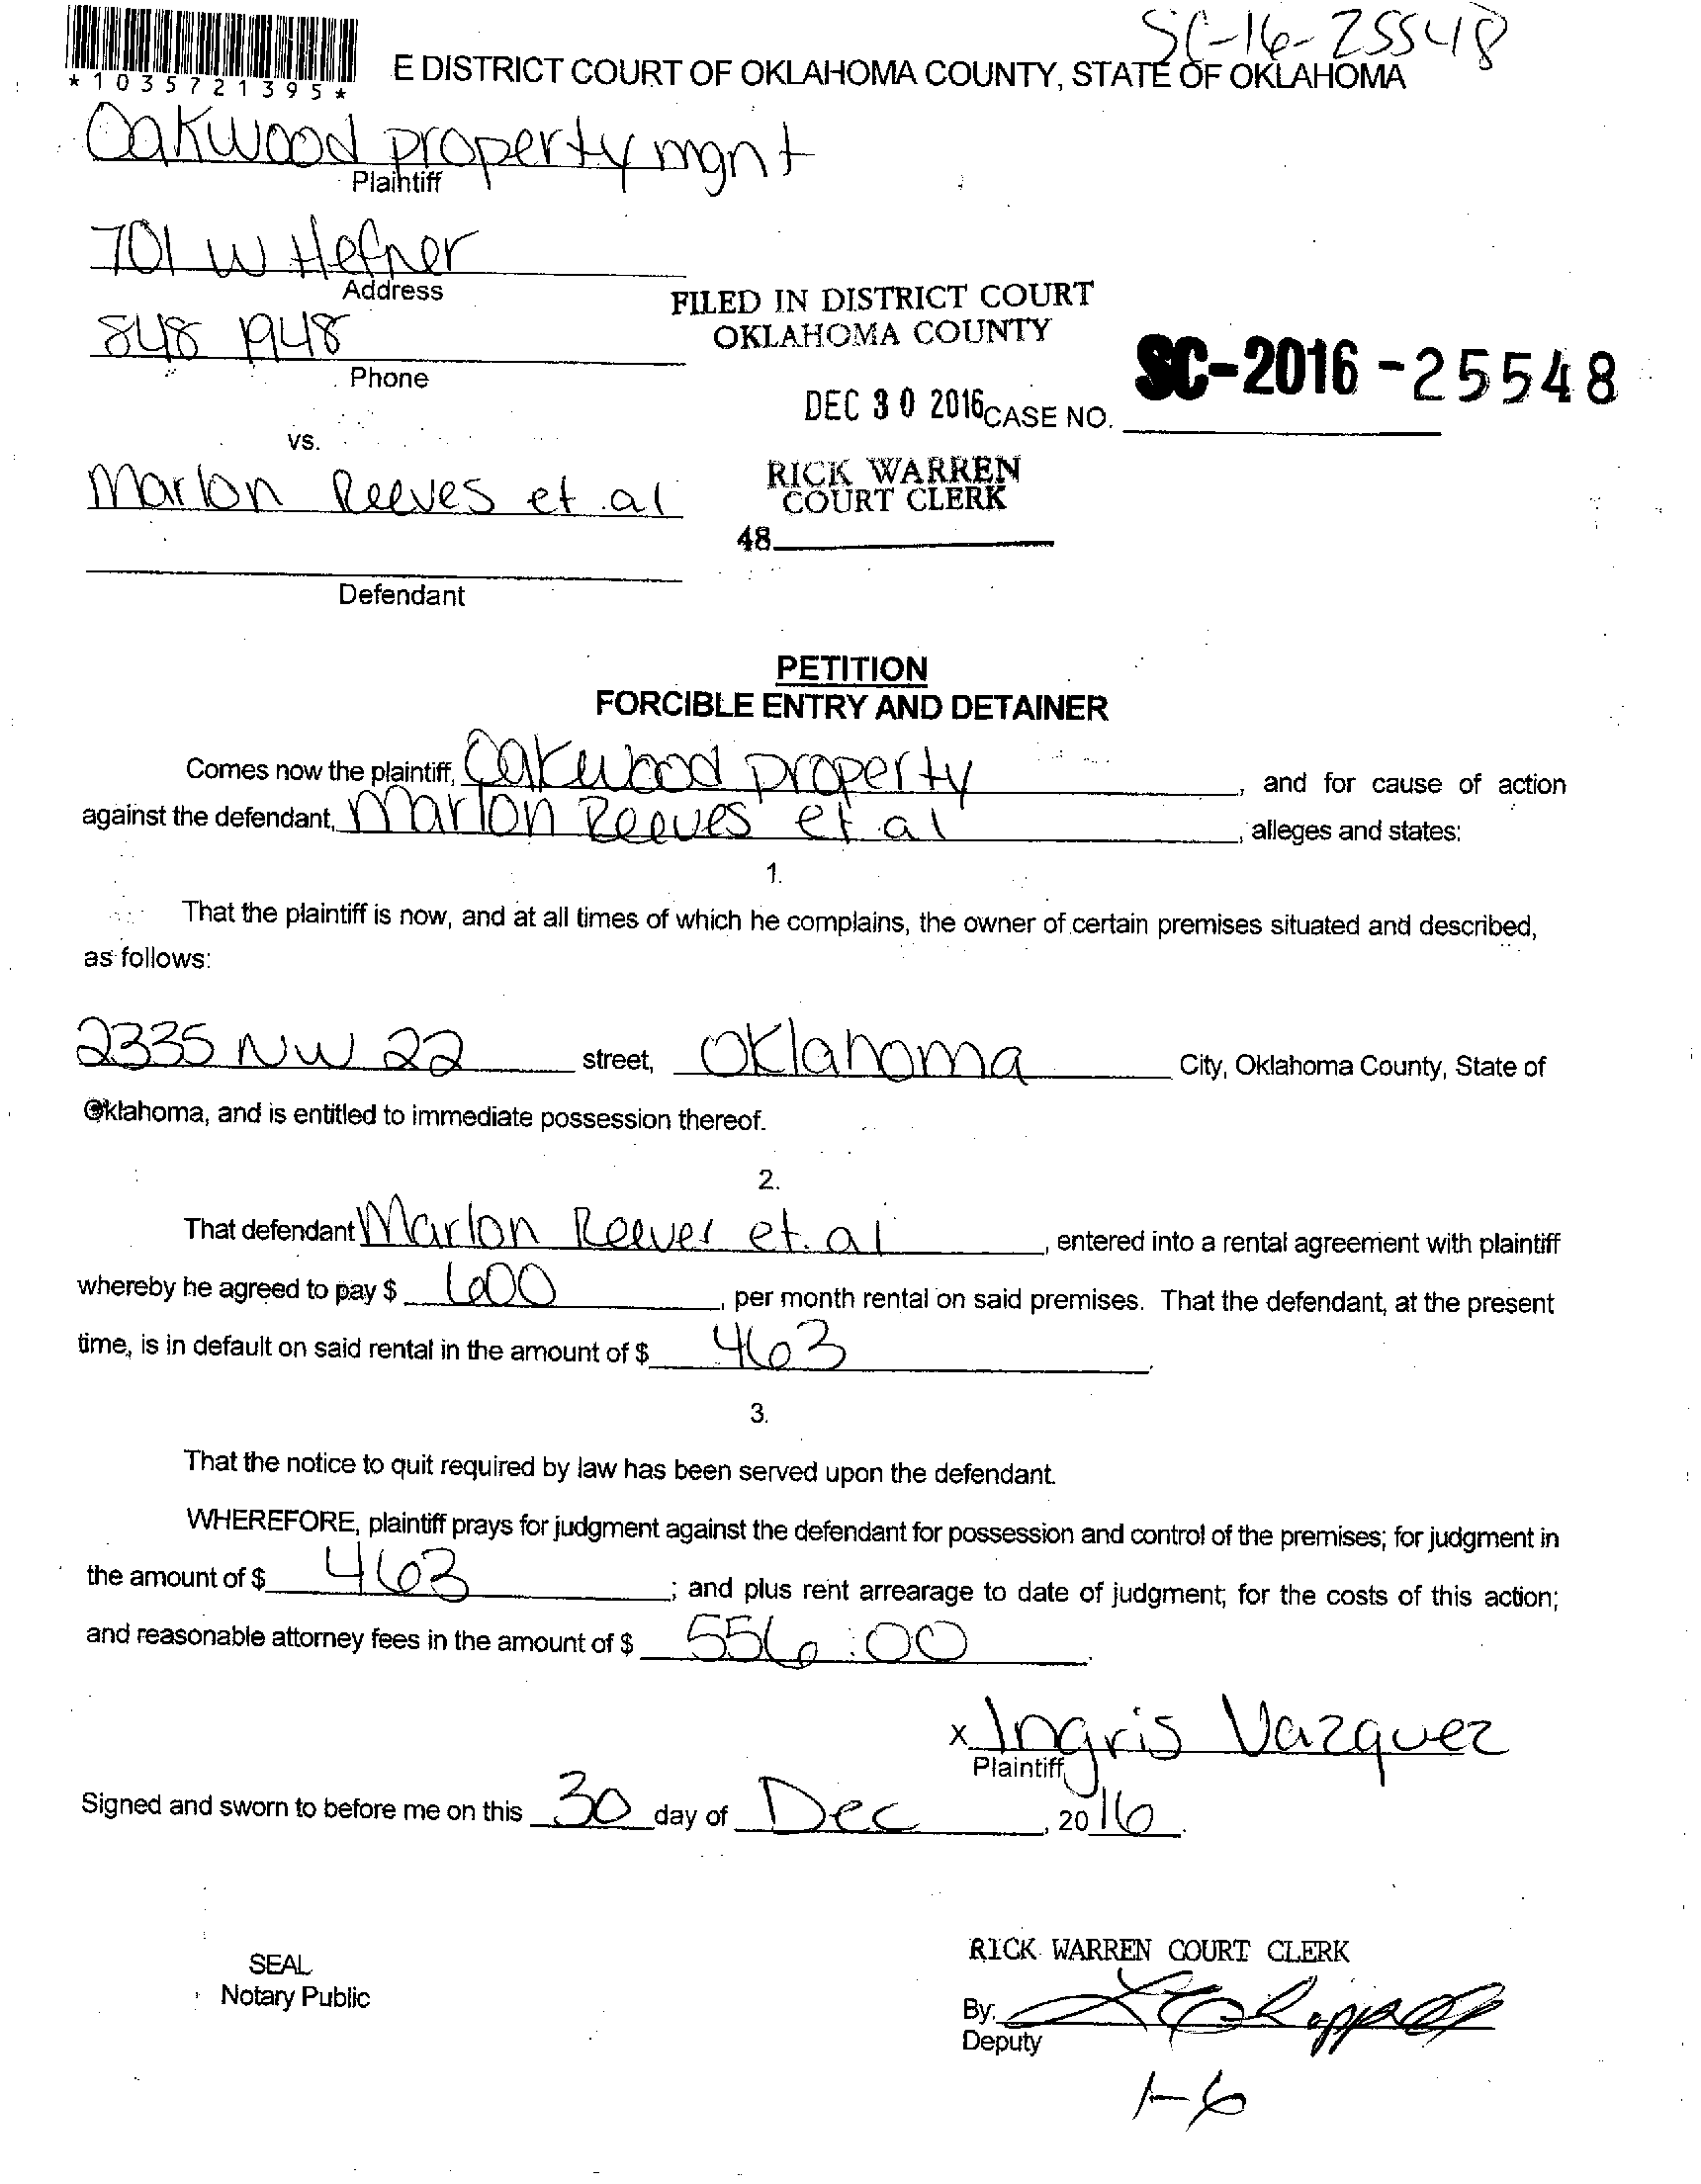 SC-16-25548
*1035721395*
E DISTRICT COURT OF OKLAHOMA COUNTY, STATE OF OKLAHOMA
Oakwood property mgnt
Plaintiff
701 W Hefner
Address
848 1948
Phone
FILED IN DISTRICT COURT
OKLAHOMA COUNTY
DEC 30 2016
CASE NO. SC-2016-25548
vs.
RICK WARREN
COURT CLERK
48
Marlon Reeves et.al
Defendant
PETITION
FORCIBLE ENTRY AND DETAINER
Comes now the plaintiff, Oakwood property, and for cause of action
against the defendant, Marlon Reeves et al, alleges and states:
1.
That the plaintiff is now, and at all times of which he complains, the owner of certain premises situated and described,
as follows:
2335 NW 22 street, Oklahoma City, Oklahoma County, State of
Oklahoma, and is entitled to immediate possession thereof.
2.
That defendant Marlon Reeves et. al, entered into a rental agreement with plaintiff
whereby he agreed to pay $ 600, per month rental on said premises. That the defendant, at the present
time, is in default on said rental in the amount of $ 463.
3.
That the notice to quit required by law has been served upon the defendant.
WHEREFORE, plaintiff prays for judgment against the defendant for possession and control of the premises; for judgment in
the amount of $ 463; and plus rent arrearage to date of judgment; for the costs of this action;
and reasonable attorney fees in the amount of $ 556:00.
x Ingris Vazquez
Plaintiff
Signed and sworn to before me on this 30 day of Dec, 2016.
SEAL
Notary Public
RICK WARREN COURT CLERK
By:
Deputy
1-6